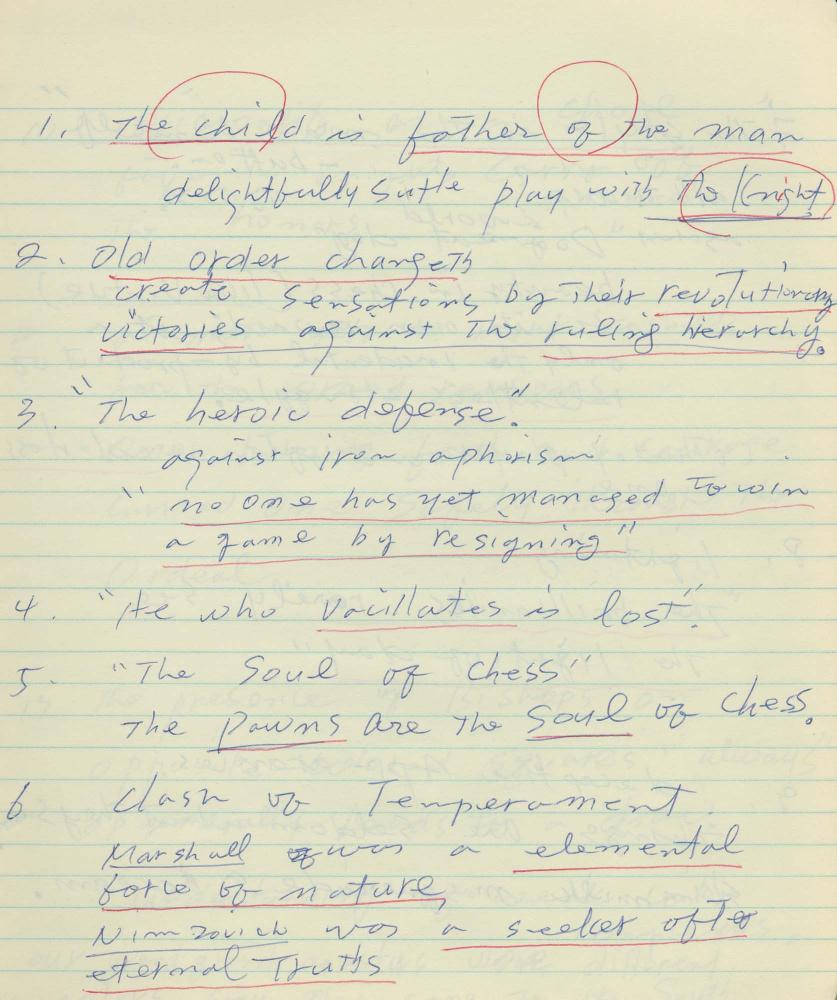 1. The child is father of the man
delightfully sutle play with the Knight
2. Old order changeth
create sensations by their revolutionary
victories against the ruling hierarchy.
3. "The heroic defense".
against iron aphorism
"no one has yet managed to win
a game by resigning"
4. "He who vacillates is lost".
5. "The Soul of Chess"
The Pawns are the Soul of Chess.
6 Clash of Temperament.
Marshall was a elemental
force of nature,
Nimzovich was a seeker of
eternal Truths